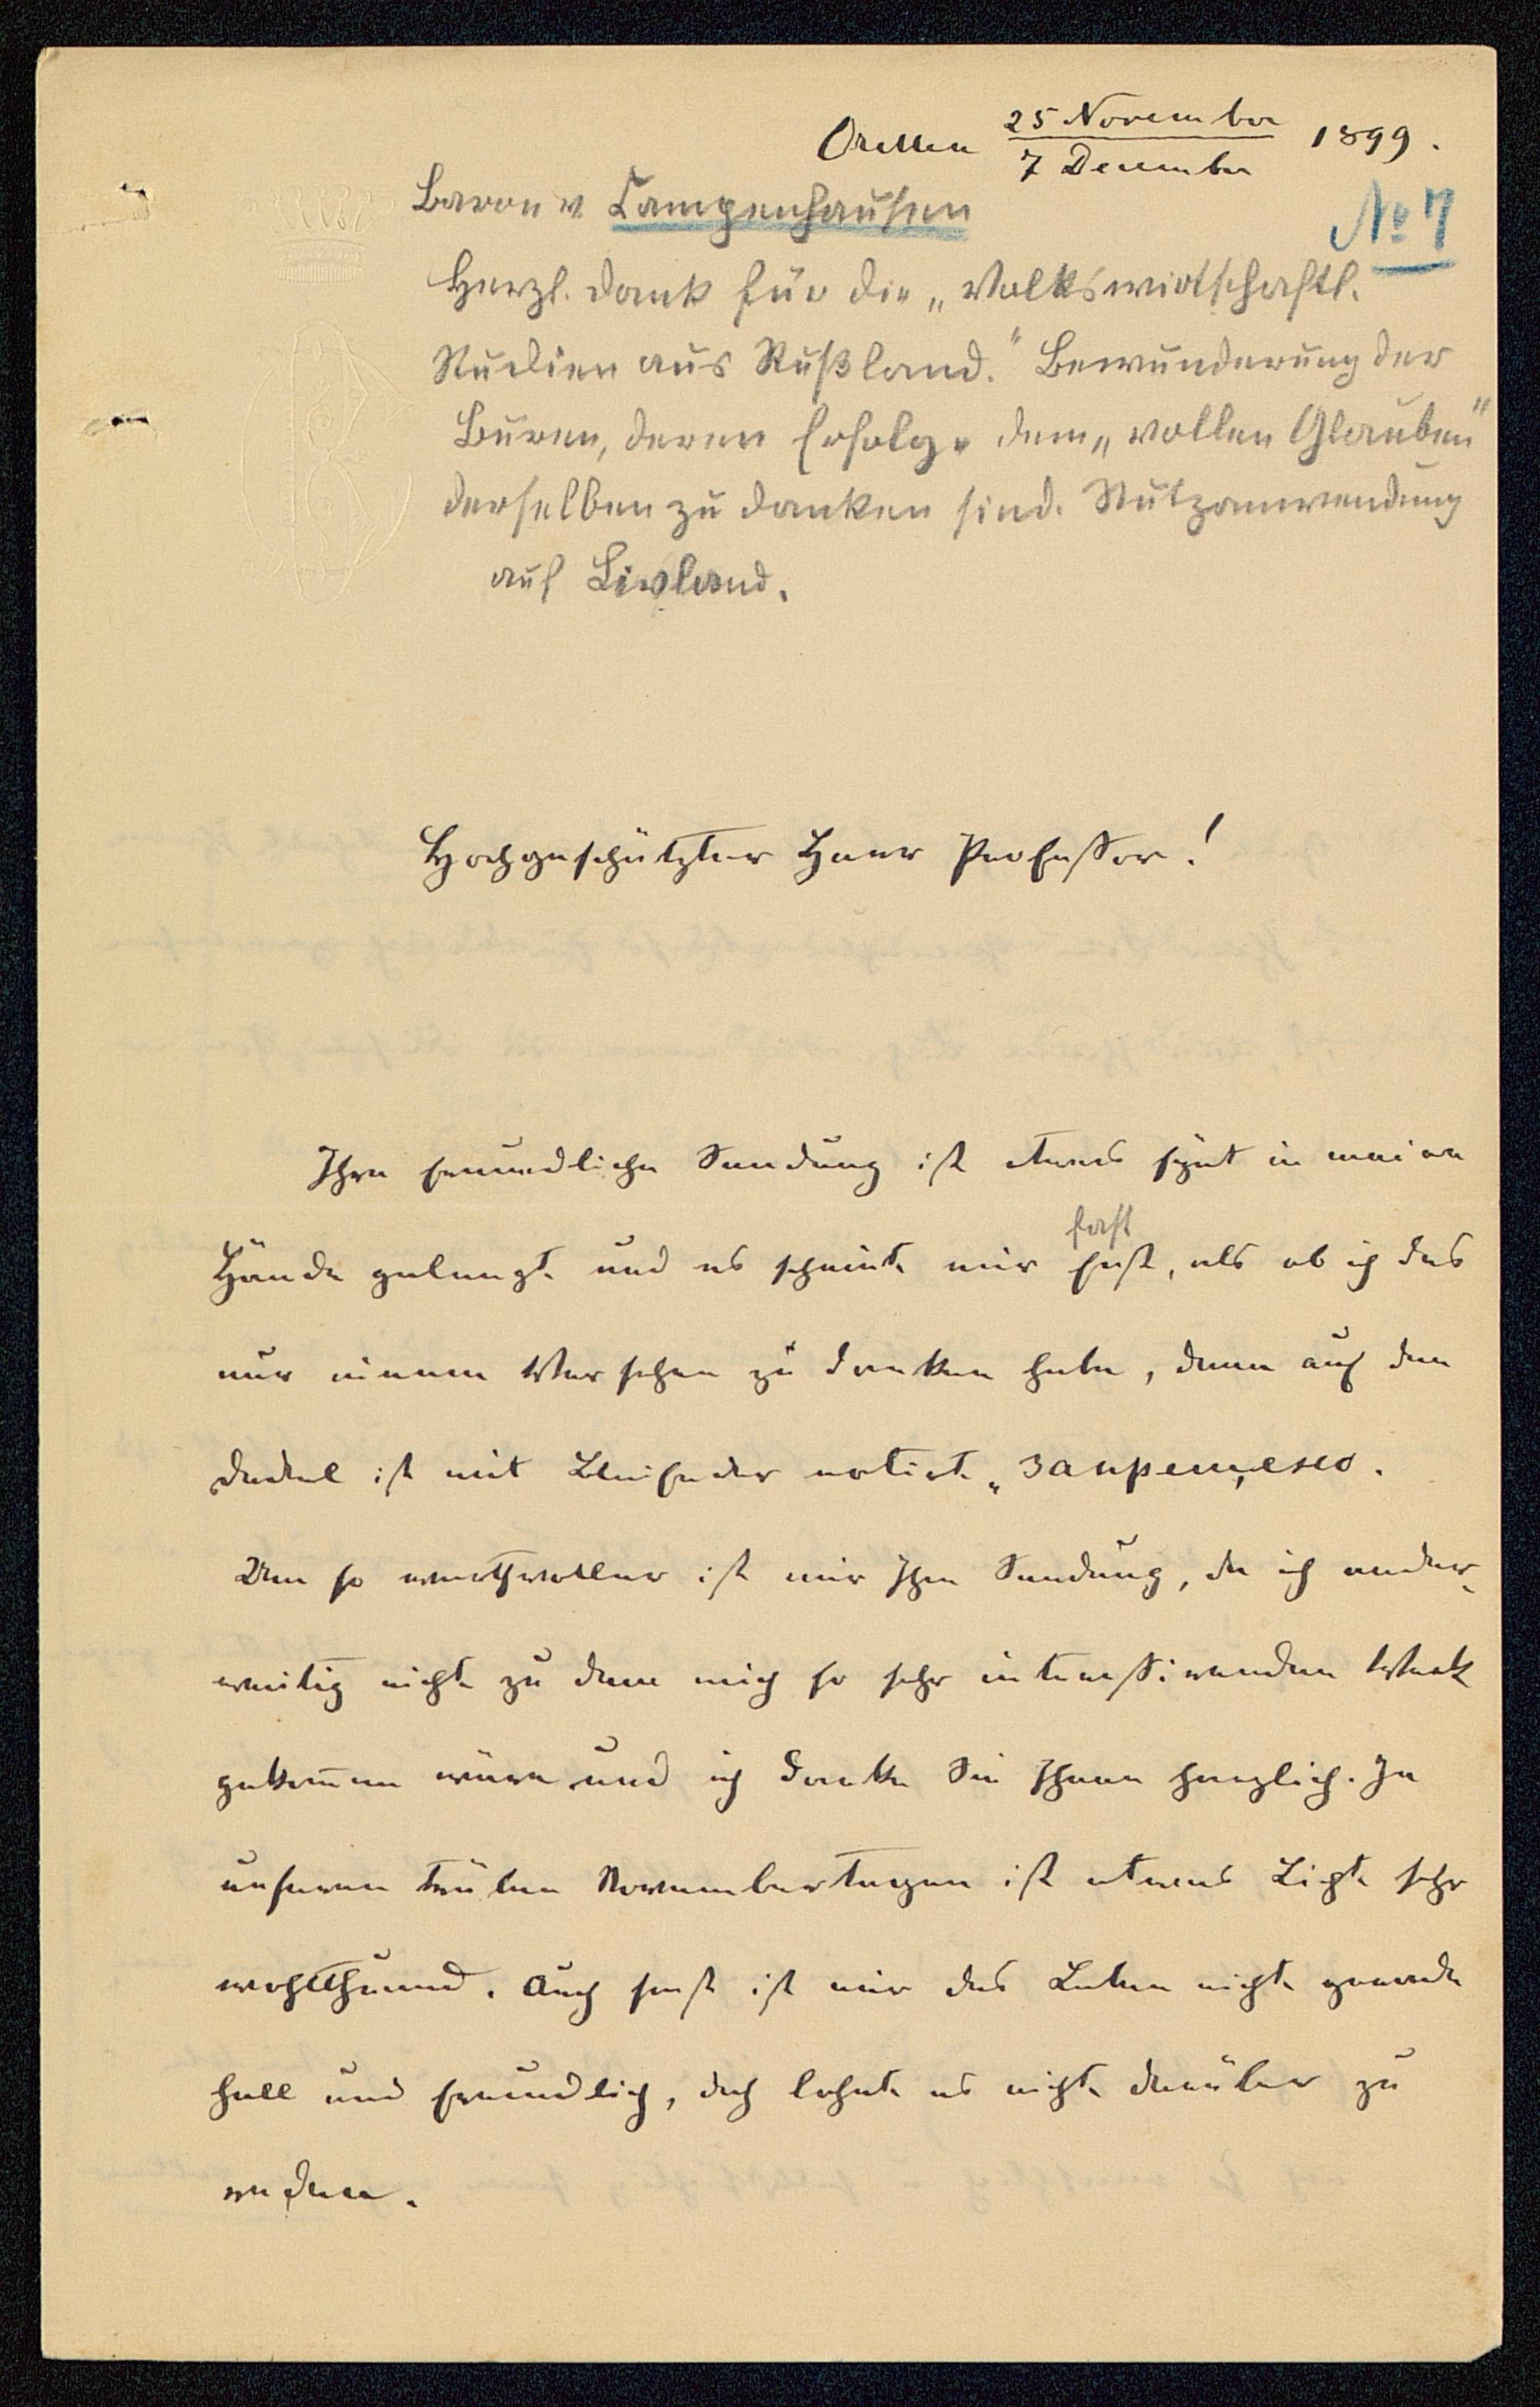 Orellen 25 November / 7 December 1899.
Baron v. Campenhausen
№ 7
Herzl. Dank für die „Volkswirtschaftl.
Studien aus Rußland." Bewunderung der
Buren, deren Erfolge dem „vollen Glauben"
derselben zu danken sind. Nutzanwendung
auf Livland.
Hochgeschätzter Herr Professor!
Ihre freundliche Sendung ist etwas spät in meine
fast
Hände gelangt und es scheint mir fast, als ob ich das
nur einem Versehen zu danken habe, denn auf dem
Deckel ist mit Bleifeder notirt „запрещено.
Um so werthvoller ist mir Ihre Sendung, da ich ander-
weitig nicht zu dem mich so sehr interessirenden Werk
gekom̅en wäre und ich danke Sie Ihnen herzlich. In
unseren trüben Novembertagen ist etwas Licht sehr
wohlthuend. Auch sonst ist mir das Leben nicht gerade
hell und freundlich, doch lohnt es nicht darüber zu
reden.